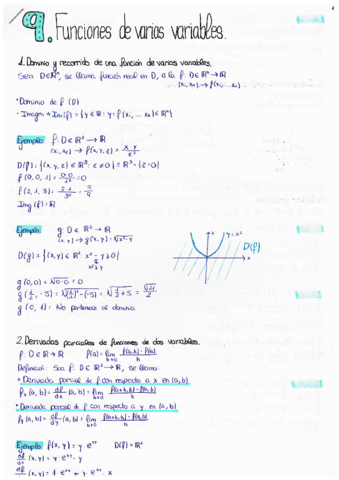 4
9. Funciones de varias variables.
1. Dominio y recorrido de una función de varias variables.
Sea D∈ℝⁿ, se llama función real en D, a la f: D∈ℝⁿ → ℝ
(x₁, xₙ) → f(x₁, ... xₙ)
• Dominio de f (D)
• Imagen → Im(f) = {y ∈ ℝ : y = f(x₁, ... xₙ) ∈ ℝⁿ}
Ejemplo: f: D ∈ ℝ³ → ℝ
→ f(x, y, z) = x·y/z²
D(f) = {(x, y, z) ∈ ℝ³: z ≠ 0} = ℝ³ - {z=0}
f(0, 0, 1) = 0·0/1² = 0
f(2, 1, 3) = 2·1/3² = 2/9
Img (f) = ℝ
Ejemplo: g: D ∈ ℝ² → ℝ
(x, y) → g(x, y) = √x²-y
y = x²
D(f)
x
D(g) = {(x, y) ∈ ℝ²: x² - y ≥ 0}
g(0, 0) = √0-0 = 0
g(1/2, -5) = √(1/2)²-(-5) = √1/4+5 = √21/2
g(0, 1) = No pertenece al dominio.
2. Derivadas parciales de funciones de dos variables.
f: D ∈ ℝ → ℝ
Definición: Sea f: D ∈ ℝ² → ℝ, se llama:
• Derivada parcial de f con respecto a x en (a, b)
fₓ(a, b) = df/dx (a, b) = lim h→0 f(a+h, b) - f(a, b)/h
• Derivada parcial de f con respecto a y en (a, b)
Ejemplo: f(x, y) = y·eˣʸ D(f) = ℝ²
df/dx (x, y) = y·eˣʸ·y
df/dy (x, y) = 1·eˣʸ + y·eˣʸ·x